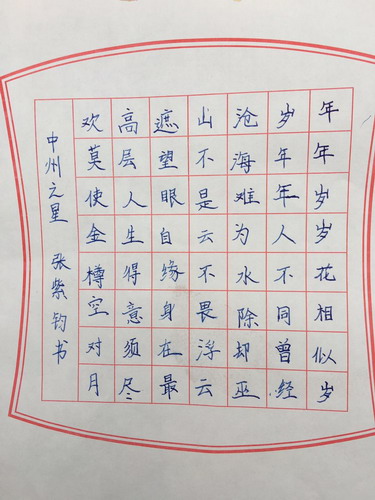 年年岁岁花相似岁
岁年年人不同曾经
沧海难为水除却巫
山不是云不畏浮云
遮望眼自缘身在最
高层人生得意须尽
欢莫使金樽空对月
中州之星 张紫钧书